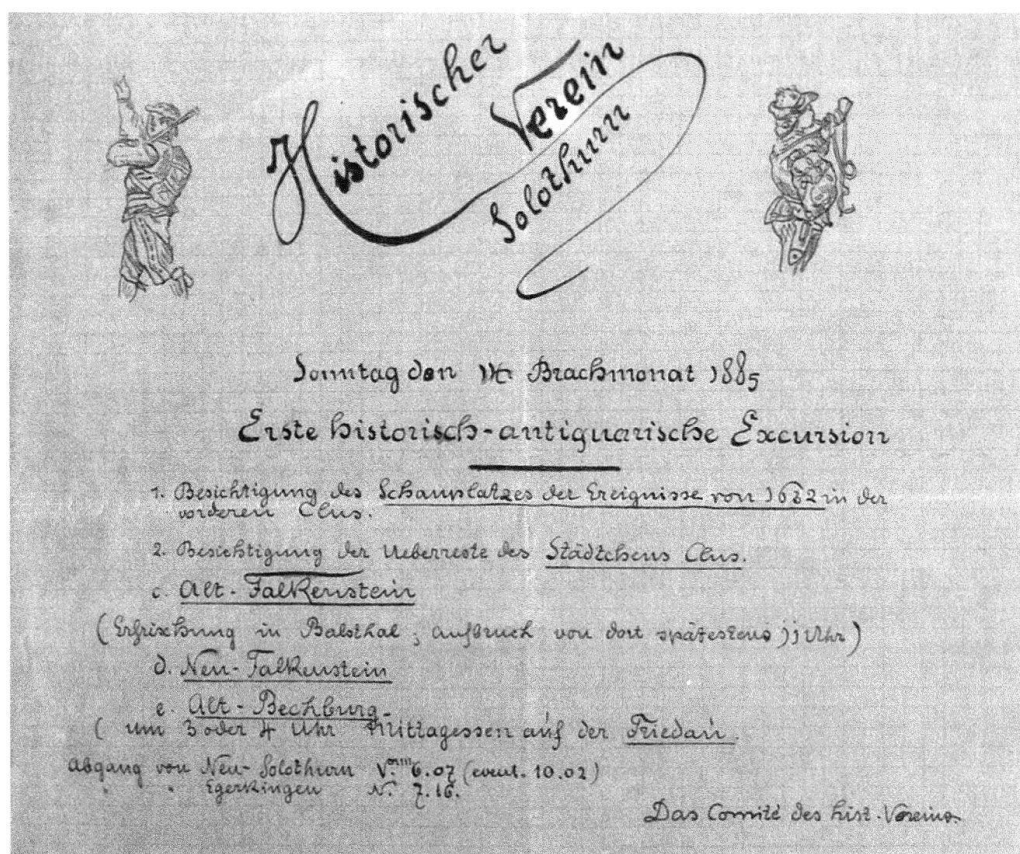 Historischer
Verein
Solothurn
Sonntag den 14t Brachmonat 1885
Erste historisch-antiquarische Excursion
1. Besichtigung des Schauplatzes der Ereignisse von 1632 in der
vorderen Clus.
2. Besichtigung der Ueberreste des Städtchens Clus.
c. Alt-Falkenstein
(Erfrischung in Balsthal; Aufbruch von dort spätestens 11 Uhr)
d. Neu-Falkenstein
e. Alt-Bechburg.
(um 3 oder 4 Uhr Mittagessen auf der Friedau.
Abgang von Neu-Solothurn Vorm 6.07 (event. 10.02)
" " Egerkingen N. 7.16.
Das Comité des hist. Vereins.